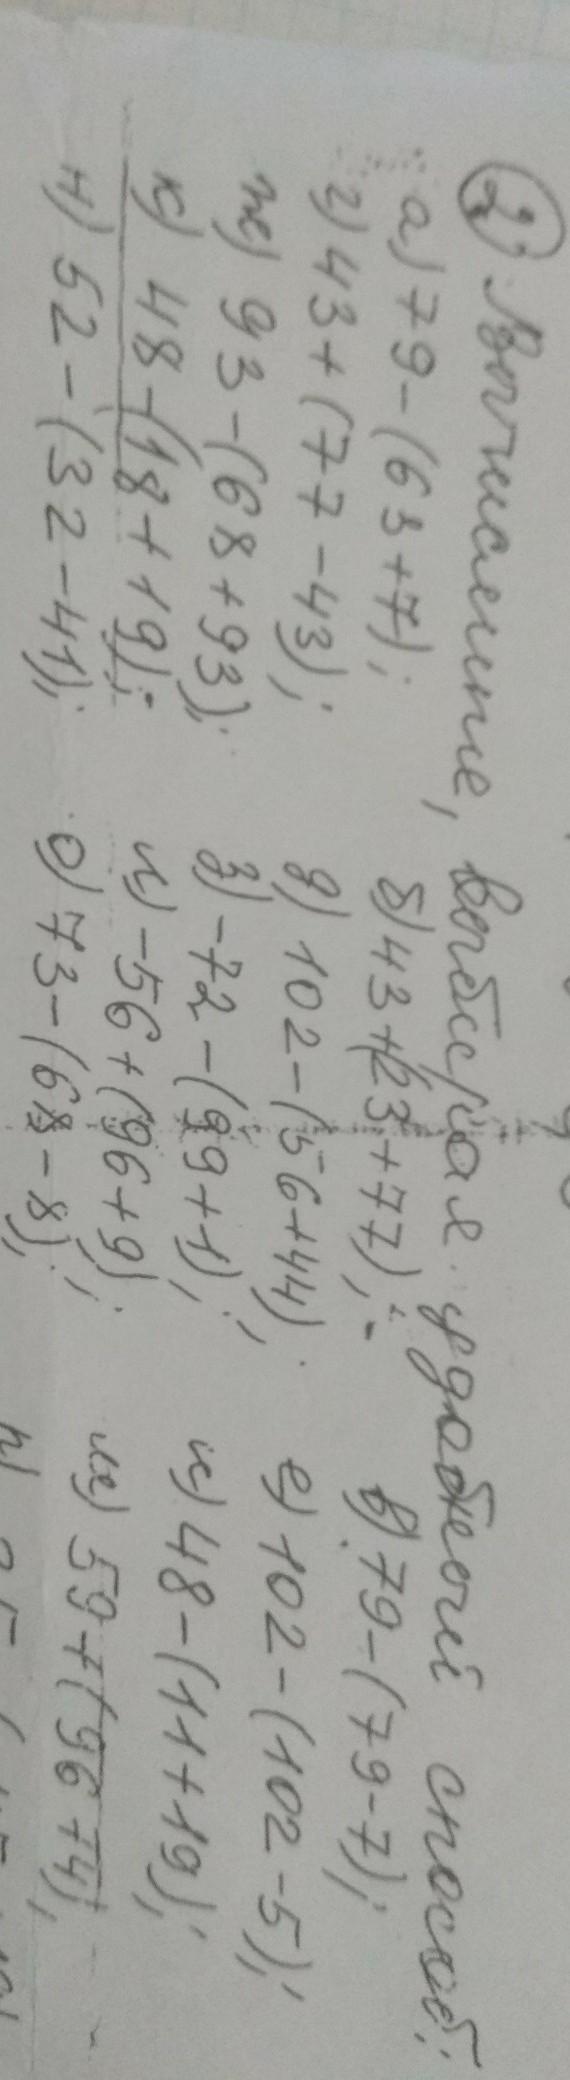 ② Вычислите, выбирая удобный способ:
а) 79-(63+7); б) 43+(23+77); в) 79-(79-7);
г) 43+(77-43); д) 102-(56+44); е) 102-(102-5);
ж) 93-(68+93); з) -72-(99+1); и) 48-(11+19);
к) 48-(18+19); л) -56+(96+9); м) 59+(96+4);
н) 52-(32-41); о) 73-(68-8);